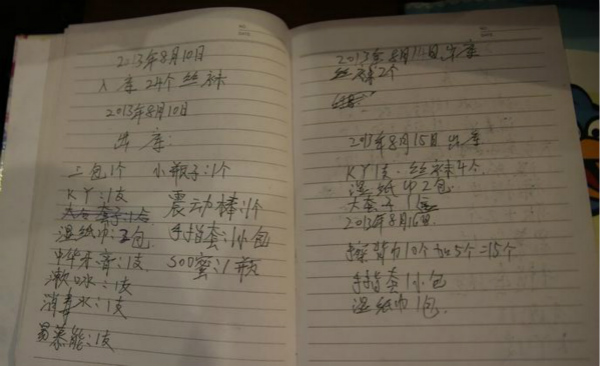 2013年8月10日
入库24个丝袜
2013年8月10日
出库:
二包1个 小瓶子:1个
KY:1支 震动棒:1个
湿纸巾:3包 手指套:1小包
中华牙膏:1支 SOD蜜:1瓶
漱口水:1支
消毒水:1支
曼慕能:1支
2013年8月14日出库
丝袜2个
2013年8月15日出库
KY1支.丝袜4个
湿纸巾2包
大套子1
2013年8月16日
擦背巾10个加5个=15个
手指套1小包
湿纸巾1包